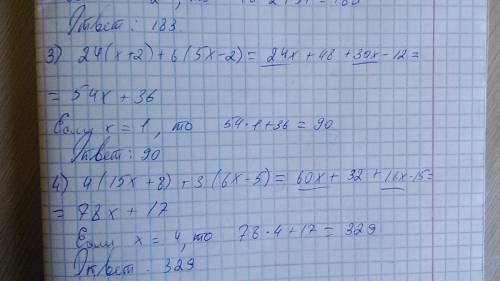 Ответ: 183
3) 24(x+2)+6(5x-2)= 24x+48+30x-12=
= 54x+36
Если x=1, то 54·1+36=90
Ответ: 90
4) 4(15x+8)+3(6x-5)=60x+32+18x-15=
= 78x+17
Если x=4, то 78·4+17=329
Ответ: 329